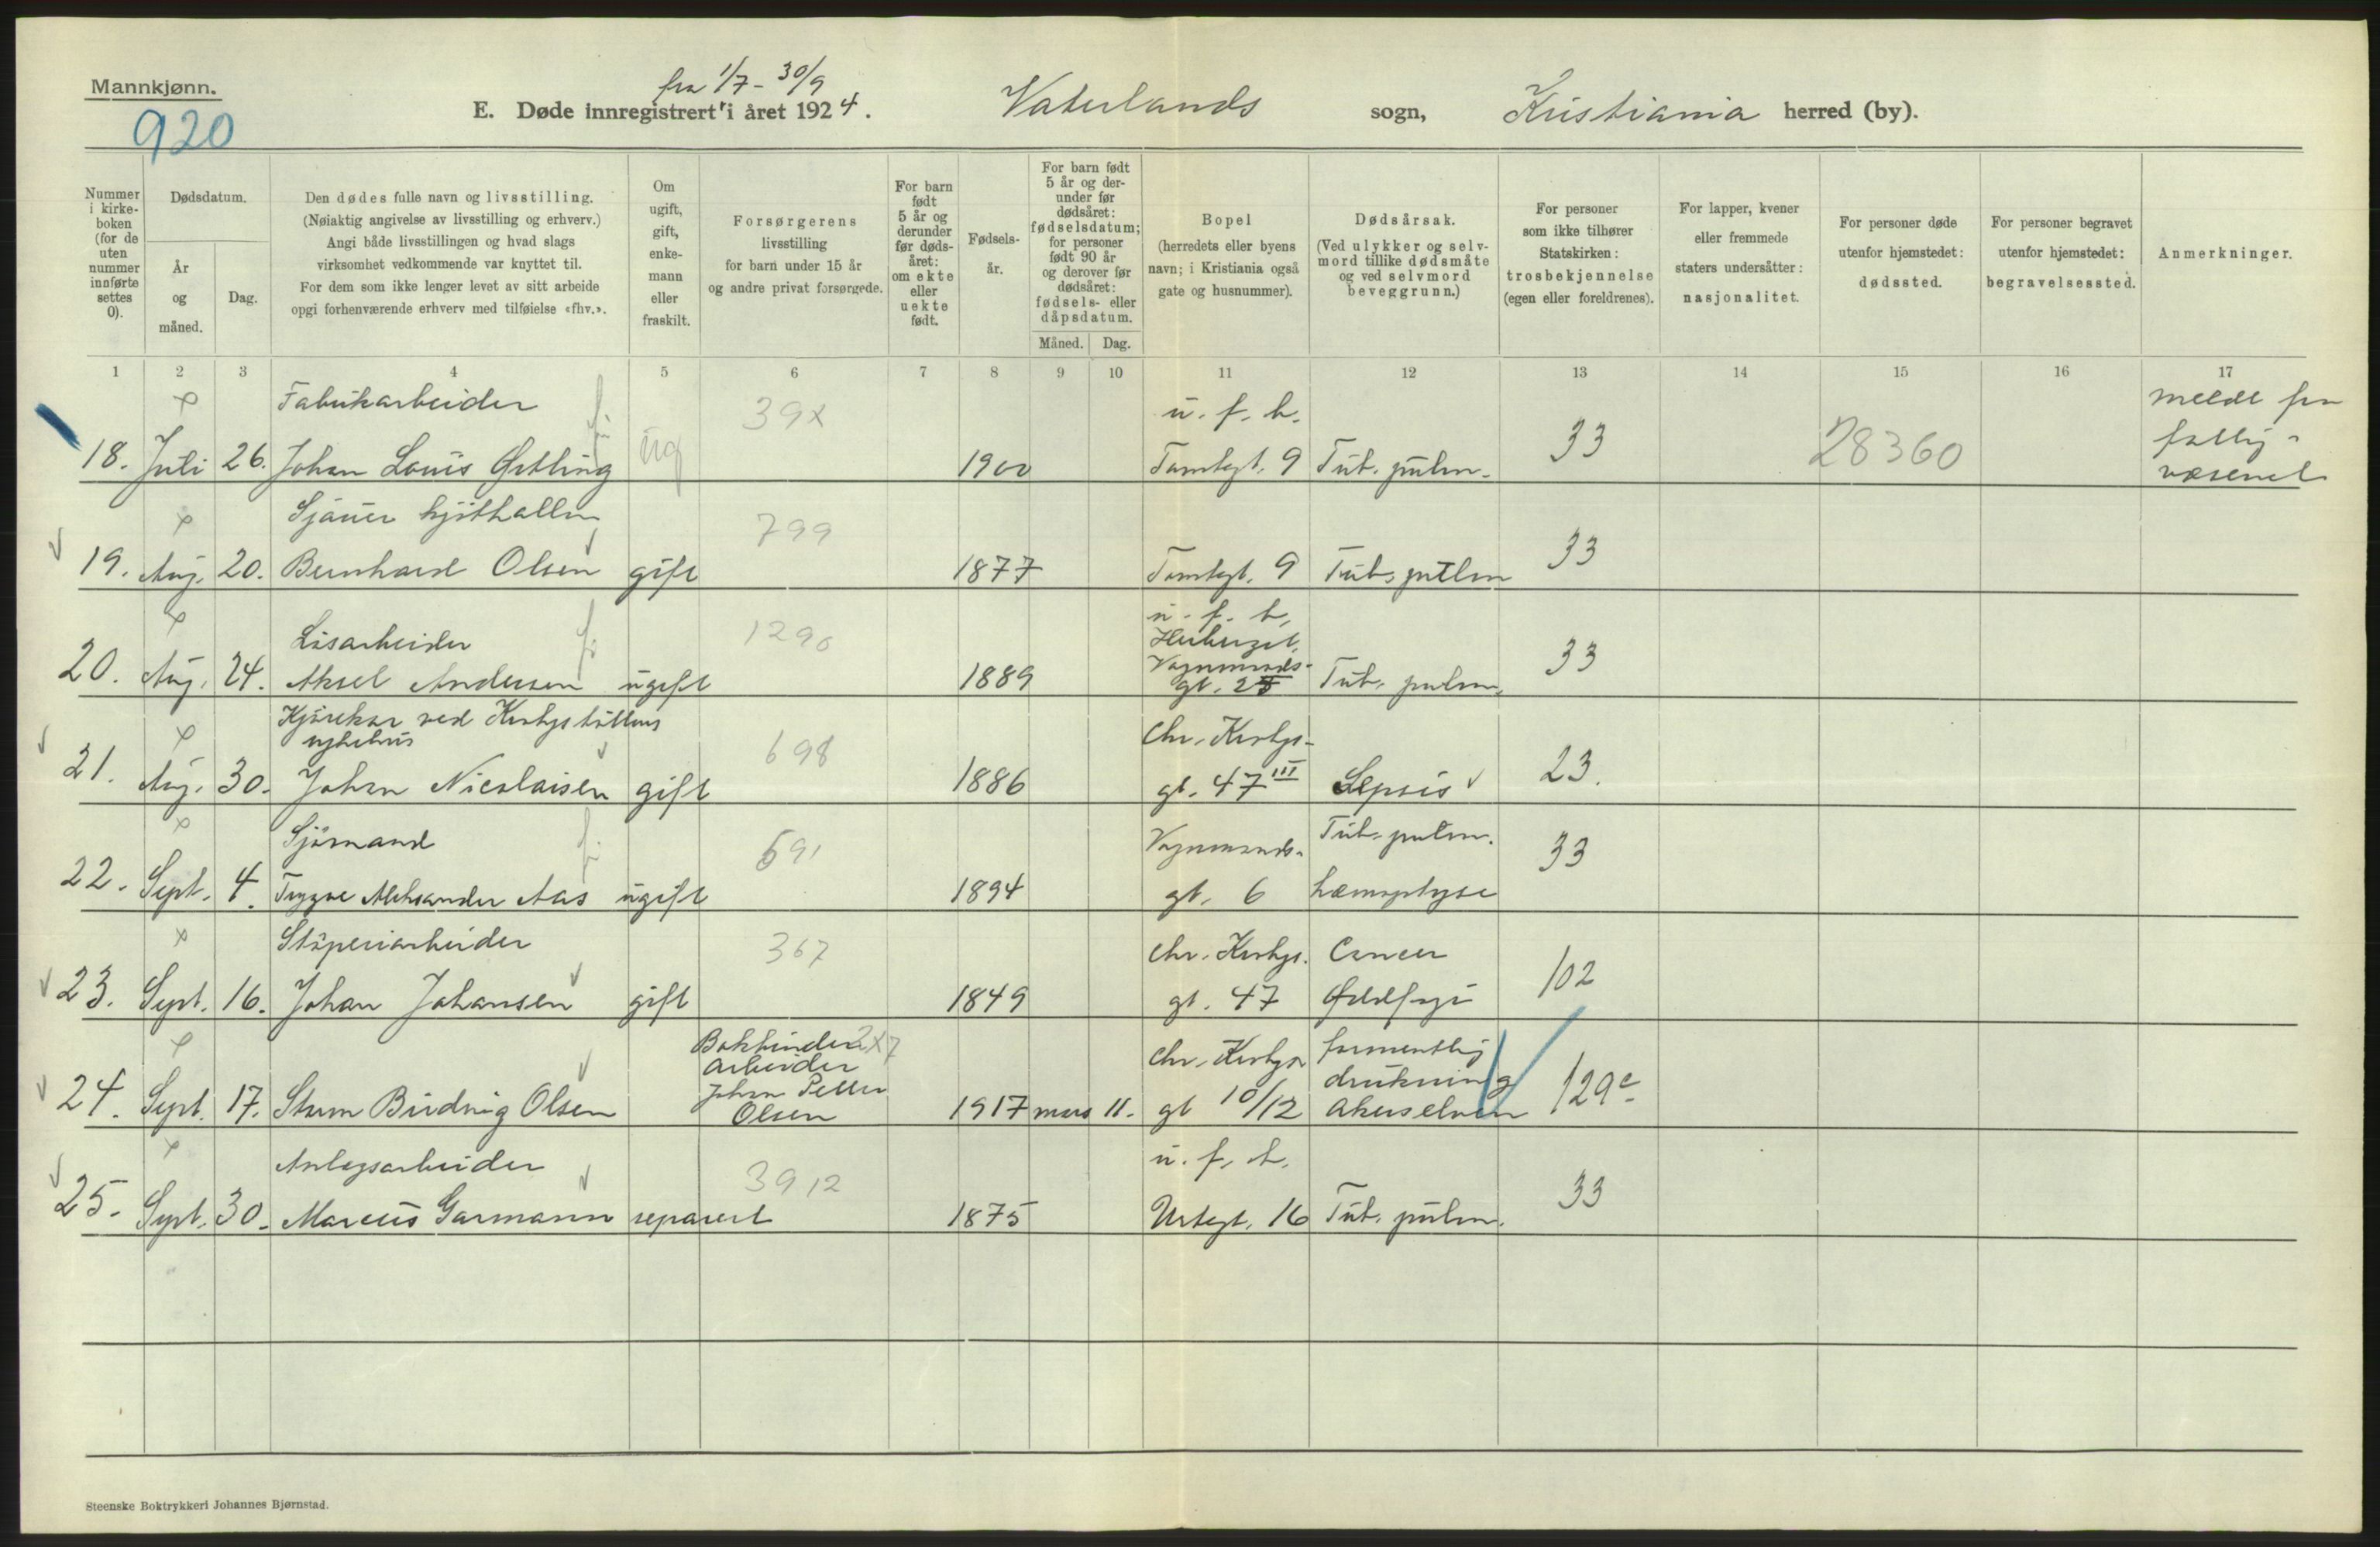 Mannkjønn.
920
fra 1/7 - 30/9
E. Døde innregistrert i året 1924.
Vaterlands sogn,
Kristiania herred (by).
Nummer i kirkeboken (for de uten nummer innførte settes 0).
Dødsdatum.
År og måned.
Dag.
Den dødes fulle navn og livsstilling.
(Nøiaktig angivelse av livsstilling og erhverv.)
Angi både livsstillingen og hvad slags
virksomhet vedkommende var knyttet til.
For dem som ikke lenger levet av sitt arbeide
opgi forhenværende erhverv med tilføielse «fhv.».
Om ugift, gift, enkemann eller fraskilt.
Forsørgerens
livsstilling
for barn under 15 år
og andre privat forsørgede.
For barn født 5 år og derunder før dødsåret: om ekte eller uekte født.
Fødselsår.
For barn født 5 år og derunder før dødsåret: fødselsdatum; for personer født 90 år og derover før dødsåret: fødsels- eller dåpsdatum.
Måned.
Dag.
Bopel
(herredets eller byens
navn; i Kristiania også
gate og husnummer).
Dødsårsak.
(Ved ulykker og selvmord tillike dødsmåte og ved selvmord beveggrunn.)
For personer
som ikke tilhører
Statskirken:
trosbekjennelse
(egen eller foreldrenes).
For lapper, kvener
eller fremmede
staters undersåtter:
nasjonalitet.
For personer døde
utenfor hjemstedet:
dødssted.
For personer begravet
utenfor hjemstedet:
begravelsessted.
Anmerkninger.
1 2 3 4 5 6 7 8 9 10 11 12 13 14 15 16 17
Fabrikarbeider
39x
u. f. h.
33
28360
meldt fra
fattig-
væsenet
18. Juli 26. Johan Louis Østling ug 1900 Tomtegt. 9 Tub. pulm.
Sjauer kjøthallen
799
33
19. Aug. 20. Bernhard Olsen gift 1877 Tomtegt. 9 Tub. pulm
Løsarbeider
1290
u. f. h.
Herberget,
Vognmands-
gt. 25
33
20. Aug. 24. Aksel Andersen ugift 1889 Tub. pulm.
Kjørekar ved Kirkegt
698
Chr. Krohgs-
gt. 47 III
23.
21. Aug. 30. Johan Nicolaisen gift 1886 Sepsis
Sjømand
691
Vognmands-
gt. 6
Tub. pulm.
hæmoptyse
33
22. Sept. 4. Trygve Aleksander Aas ugift 1894
Støperiarbeider
367
Chr. Krohgs.
gt. 47
Cancer
102
23. Sept. 16. Johan Johansen gift 1849
Bokbinder
arbeider
Johan Petter
Olsen
Chr. Krohgs
gt 10/12
formentlig
drukning
Akerselven
129c
24. Sept. 17. Olsen 1917 mars 11.
Anlegsarbeider
3912
u. f. h.
33
25. Sept. 30. Marcus Garmann separert 1875 Urtegt. 16 Tub. pulm.
Steenske Boktrykkeri Johannes Bjørnstad.